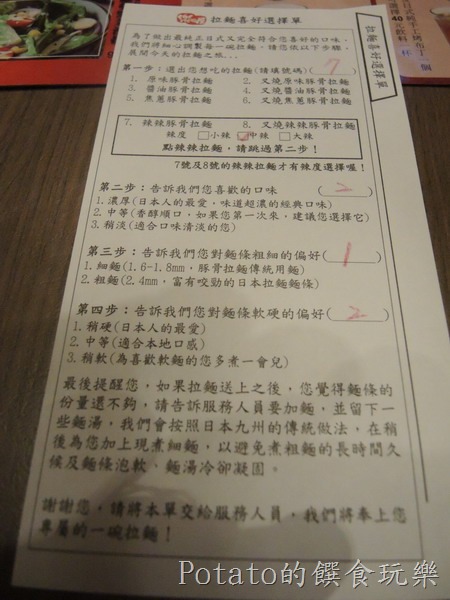 拉麵喜好選擇單
為了做出最純正日式又完全符合您喜好的口味，
我們將細心調製每一碗拉麵，請您依以下步驟，
展開今天的拉麵之旅...
第一步：選出您想吃的拉麵(請填號碼)( 7 )
1. 原味豚骨拉麵 2. 叉燒原味豚骨拉麵
3. 醬油豚骨拉麵 4. 叉燒醬油豚骨拉麵
5. 焦蔥豚骨拉麵 6. 叉燒焦蔥豚骨拉麵
7. 辣辣豚骨拉麵 8. 叉燒辣辣豚骨拉麵
辣度 □小辣 中辣 □大辣
點辣辣拉麵，請跳過第二步！
7號及8號的辣辣拉麵才有辣度選擇喔！
第二步：告訴我們您喜歡的口味 ( 2 )
1.濃厚(日本人的最愛，味道超濃的經典口味)
2.中等(香醇順口，如果您第一次來，建議您選擇它)
3.稍淡(適合口味清淡的您)
第三步：告訴我們您對麵條粗細的偏好( 1 )
1.細麵(1.6-1.8mm，豚骨拉麵傳統用麵)
2.粗麵(2.4mm，富有咬勁的日本拉麵麵條)
第四步：告訴我們您對麵條軟硬的偏好( 2 )
1.稍硬(日本人的最愛)
2.中等(適合本地口感)
3.稍軟(為喜歡軟麵的您多煮一會兒)
最後提醒您，如果拉麵送上之後，您覺得麵條的
份量還不夠，請告訴服務人員要加麵，並留下一
些麵湯，我們會按照日本九州的傳統做法，在稍
後為您加上現煮細麵，以避免煮粗麵的長時間久
候及麵條泡軟、麵湯冷卻凝固。
謝謝您，請將本單交給服務人員，我們將奉上您
專屬的一碗拉麵！
拉麵喜好選擇單
Potato的饌食玩樂